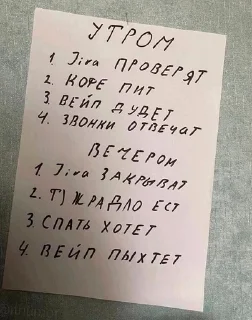 УТРОМ
1. Jira ПРОВЕРЯТ
2. КОФЕ ПИТ
3. ВЕЙП ДУДЕТ
4. ЗВОНКИ ОТВЕЧАТ
ВЕЧЕРОМ
1. Jira ЗАКРЫВАТ
2. ЖРАДЛО ЕСТ
3. СПАТЬ ХОТЕТ
4. ВЕЙП ПЫХТЕТ